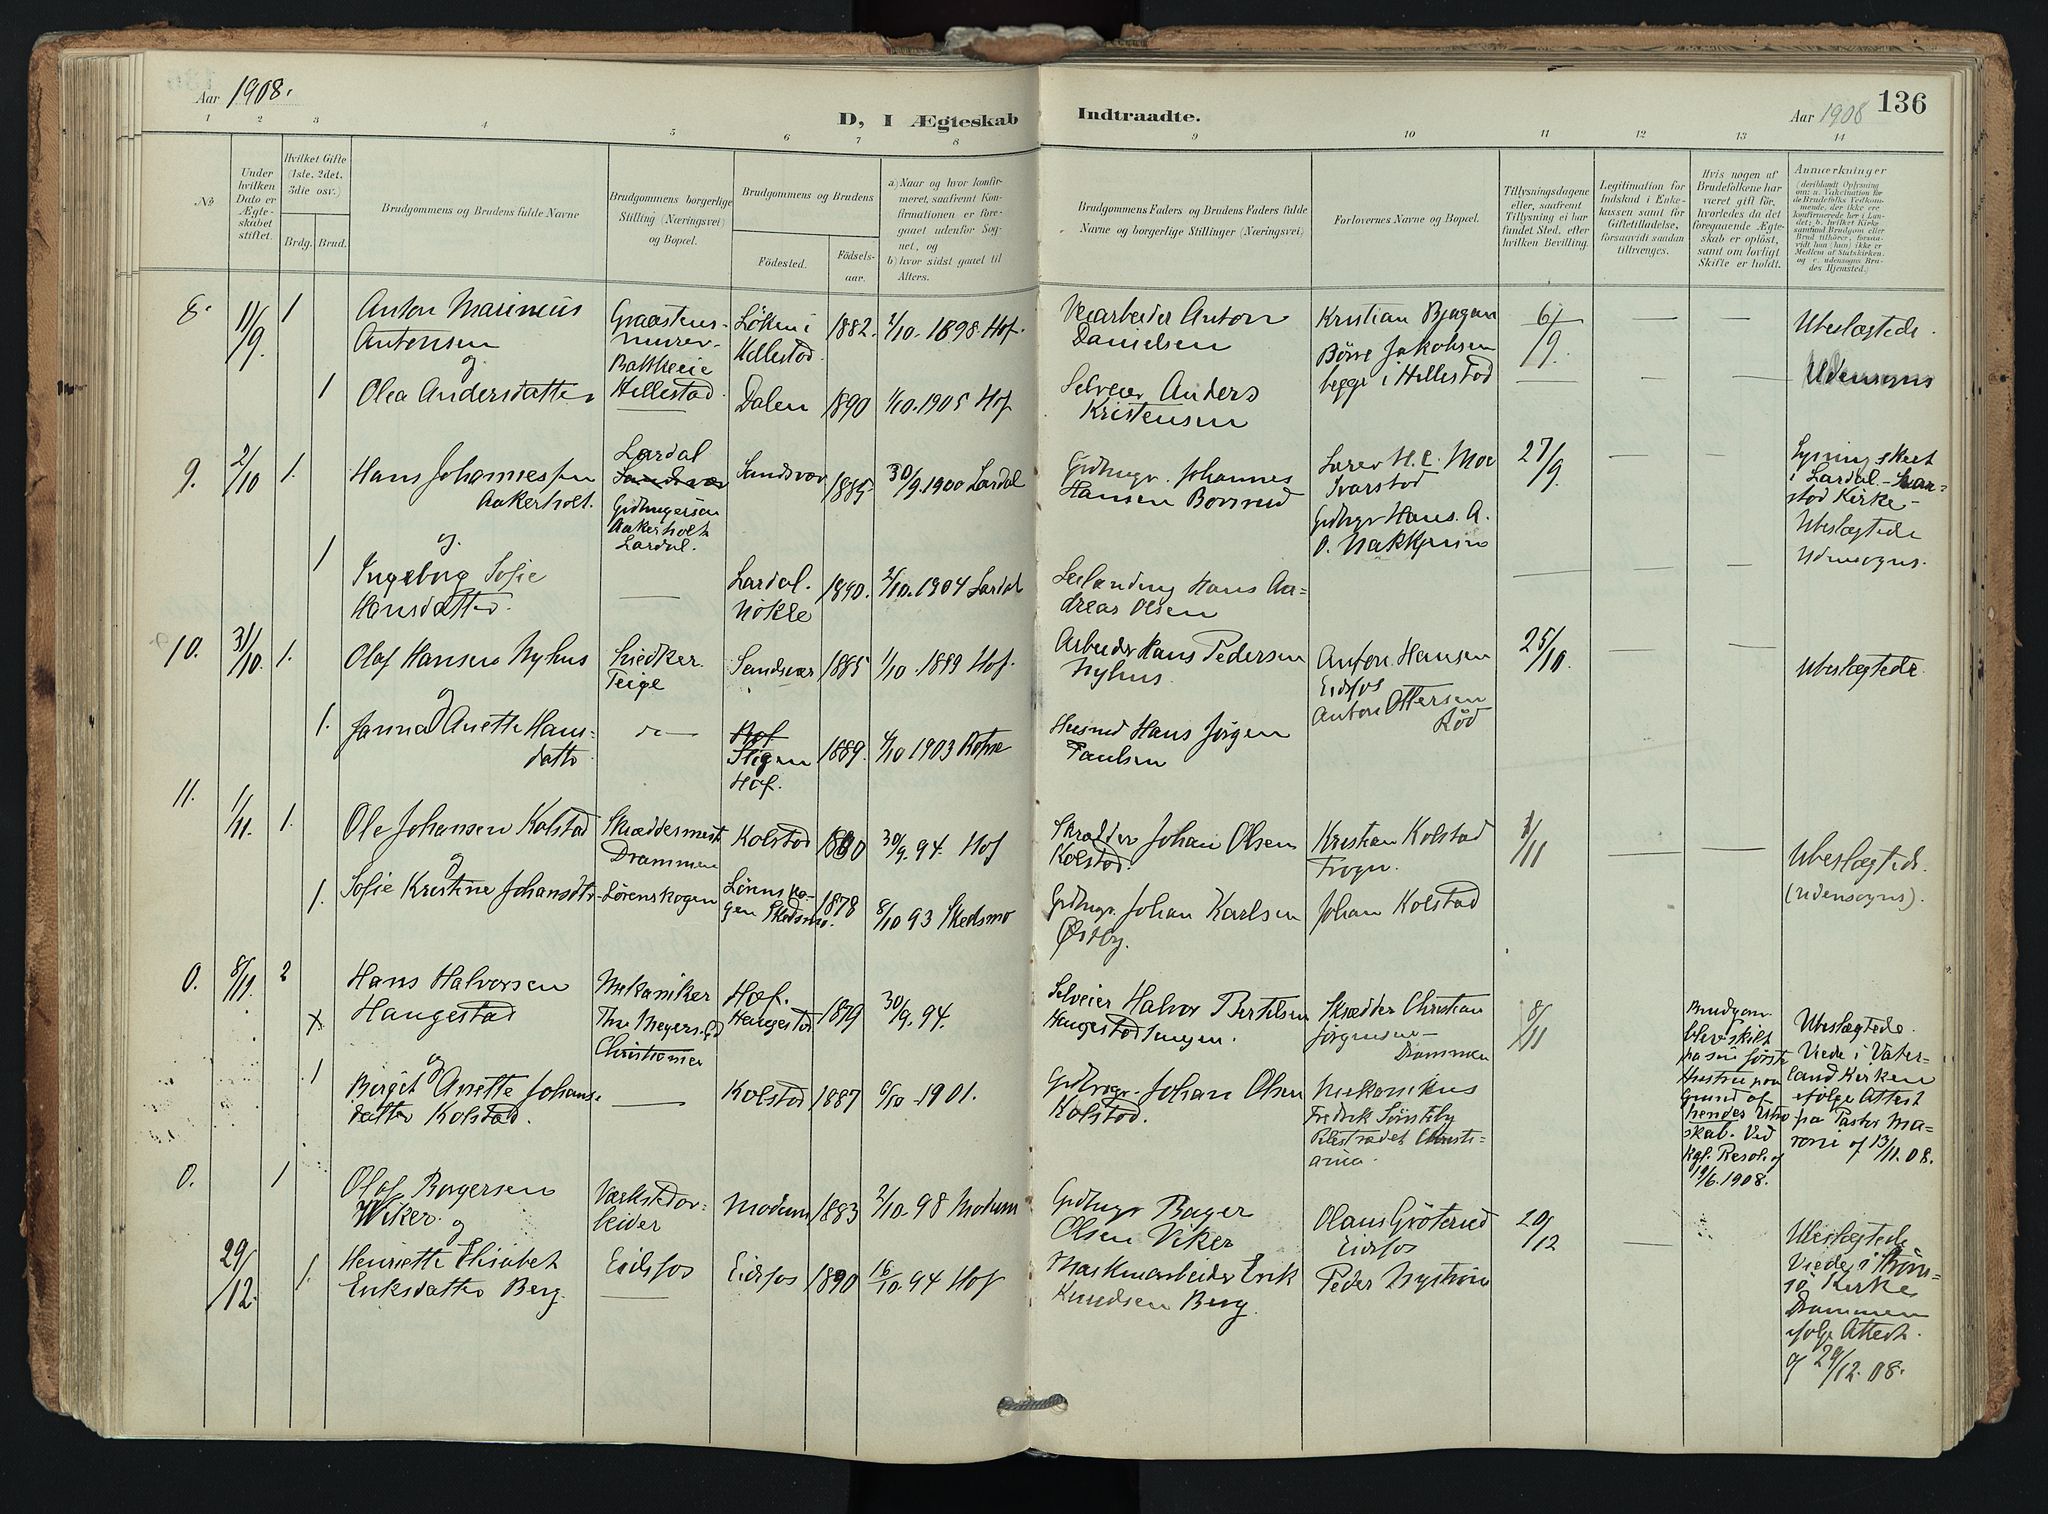 Aar 1908.
D, I Ægteskab Indtraadte.
Aar 1908
136
1 2 3 4 5 6 7 8 9 10 11 12 13 14
No
Under hvilken Dato er Ægteskabet stiftet.
Hvilket Gifte (1ste, 2det, 3die osv.)
Brdg. Brud.
Brudgommens og Brudens fulde Navne
Brudgommens borgerlige Stilling (Næringsvei) og Bopæl.
Brudgommens og Brudens
Fødested.
Fødselsaar.
a) Naar og hvor konfirmeret, saafremt Konfirmationen er foregaaet udenfor Sognet, og
b) hvor sidst gaaet til Alters.
Brudgommens Faders og Brudens Faders fulde Navne og borgerlige Stillinger (Næringsvei)
Forlovernes Navne og Bopæl.
Tillysningsdagene eller, saafremt Tillysning ei har fundet Sted, efter hvilken Bevilling.
Legitimation for Indskud i Enkekassen samt for Giftetilladelse, forsaavidt saadan tiltrænges.
Hvis nogen af Brudefolkene har været gift før, hvorledes da det foregaaende Ægteskab er opløst, samt om lovligt Skifte er holdt.
Anmærkninger
8. 11/9. 1
Anton Marinius
Antonsen
og
1 Olea Andersdatter
Graastens-
murer
Hillestad.
Løken i
Hillestad.
1882. 2/10. 1898 Hof.
Dalen 1890 1/10. 1905 Hof
Veiarbeider Anton
Danielsen
Selveier Anders
Kristensen
Kristian
Børre Jakobsen
begge i Hillestad
6/9.
Ubeslægtede.
Udensogns
9. 2/10 1.
Hans Johannessen
Aakerholt.
og
1 Ingeborg Sofie
Hansdatter.
Lardal
Sandsvær
Aakerholt
Lardal.
Sandsvær 1885 30/9. 1900 Lardal
Lardal.
1890. 2/10. 1904 Lardal
Gdbrugr. Johannes
Hansen
Hans An=
dreas Olsen
H. C. Moe
Ivarstad
Gdbrgr Hans. A.
27/9.
Lysning skeet
i Lardal
stad Kirke -
Ubeslægtede
Udensogns.
10. 31/10. 1.
Olaf Hansen Nyhus
og
1. Janna Anette Hans-
datter
Snedker
Teige
Sandsvær 1885 1/10 1899 Hof.
Hof
Stigen
Hof.
1889. 4/10 1903 Botne
Arbeider Hans Pedersen
Nyhus
Husmd Hans Jørgen
Paulsen
Anton Hansen
Eidsfos
Anton Ottersen
Rød
25/10.
Ubeslægtede.
11. 1/11. 1.
Ole Johansen Kolstad
og
1. Sofie Kristine Johansdtr
Skræddermest
Drammen
Lørenskogen
Kolstad 1880 30/9. 94. Hof
Lørensko-
gen Skedsmo.
1878 8/10 93 Skedsmo
Skrædder Johan Olsen
Kolstad.
Gdbrugr. Johan Karlsen
Østby.
Kristian Kolstad
Frogn.
Johan Kolstad
1/11
Ubeslægtede.
(udensogns).
0. 8/11. 2
Hans Halvorsen
Haugestad
og
1 Berget Anette Johans-
datter Kolstad.
Mekaniker
Thv. Meyers. Gd
Christiania
Hof.
Haugestad 1879 30/9. 94.
Kolstad 1887 6/10. 1901.
Selveier Halvor Bertelsen
Haugestad
Gdbrugr. Johan Olsen
Kolstad.
Skrædder Christian
Jørgensen -
Drammen
Mekanikus
Fredrik Sørensby
Pilestrædet Christi=
ania.
8/11
Brudgom.
blev skilt
fra sin første
Hustru paa
Grund af
hendes Utro
skab. Ved
kgl. Resol. af
19/6. 1908.
Ubeslægtede.
Viede i Vater-
land Kirken
ifølge Attest
fra Pastor Ma-
roni af 13/11. 08.
0. 29/12. 1
Olaf Borgersen
Wiker. og
1. Henriette Elisabet
Eriksdatter Berg.
Værkstedar-
beider
Eidsfos
Modum 1883 2/10. 98 Modum
Eidsfos 1890 16/10. 94 Hof
Gdbrugr Borger
Olsen Viker
Maskinarbeider Erik
Knudsen Berg.
Olaus Grøterud
Eidsfos
Peder Nystrøm
20/12
Ubeslægtede
Viede i Strøm-
sø Kirke
Drammen
ifølge Attest.
af 29/12. 08.